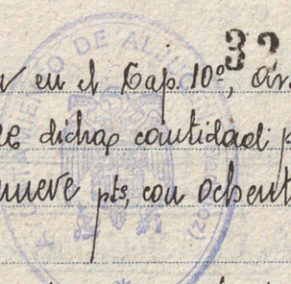 32
en el Cap. 10º, ar
dicha cantidad p
nueve pts, con ochent
AYUNTAMIENTO DE AL